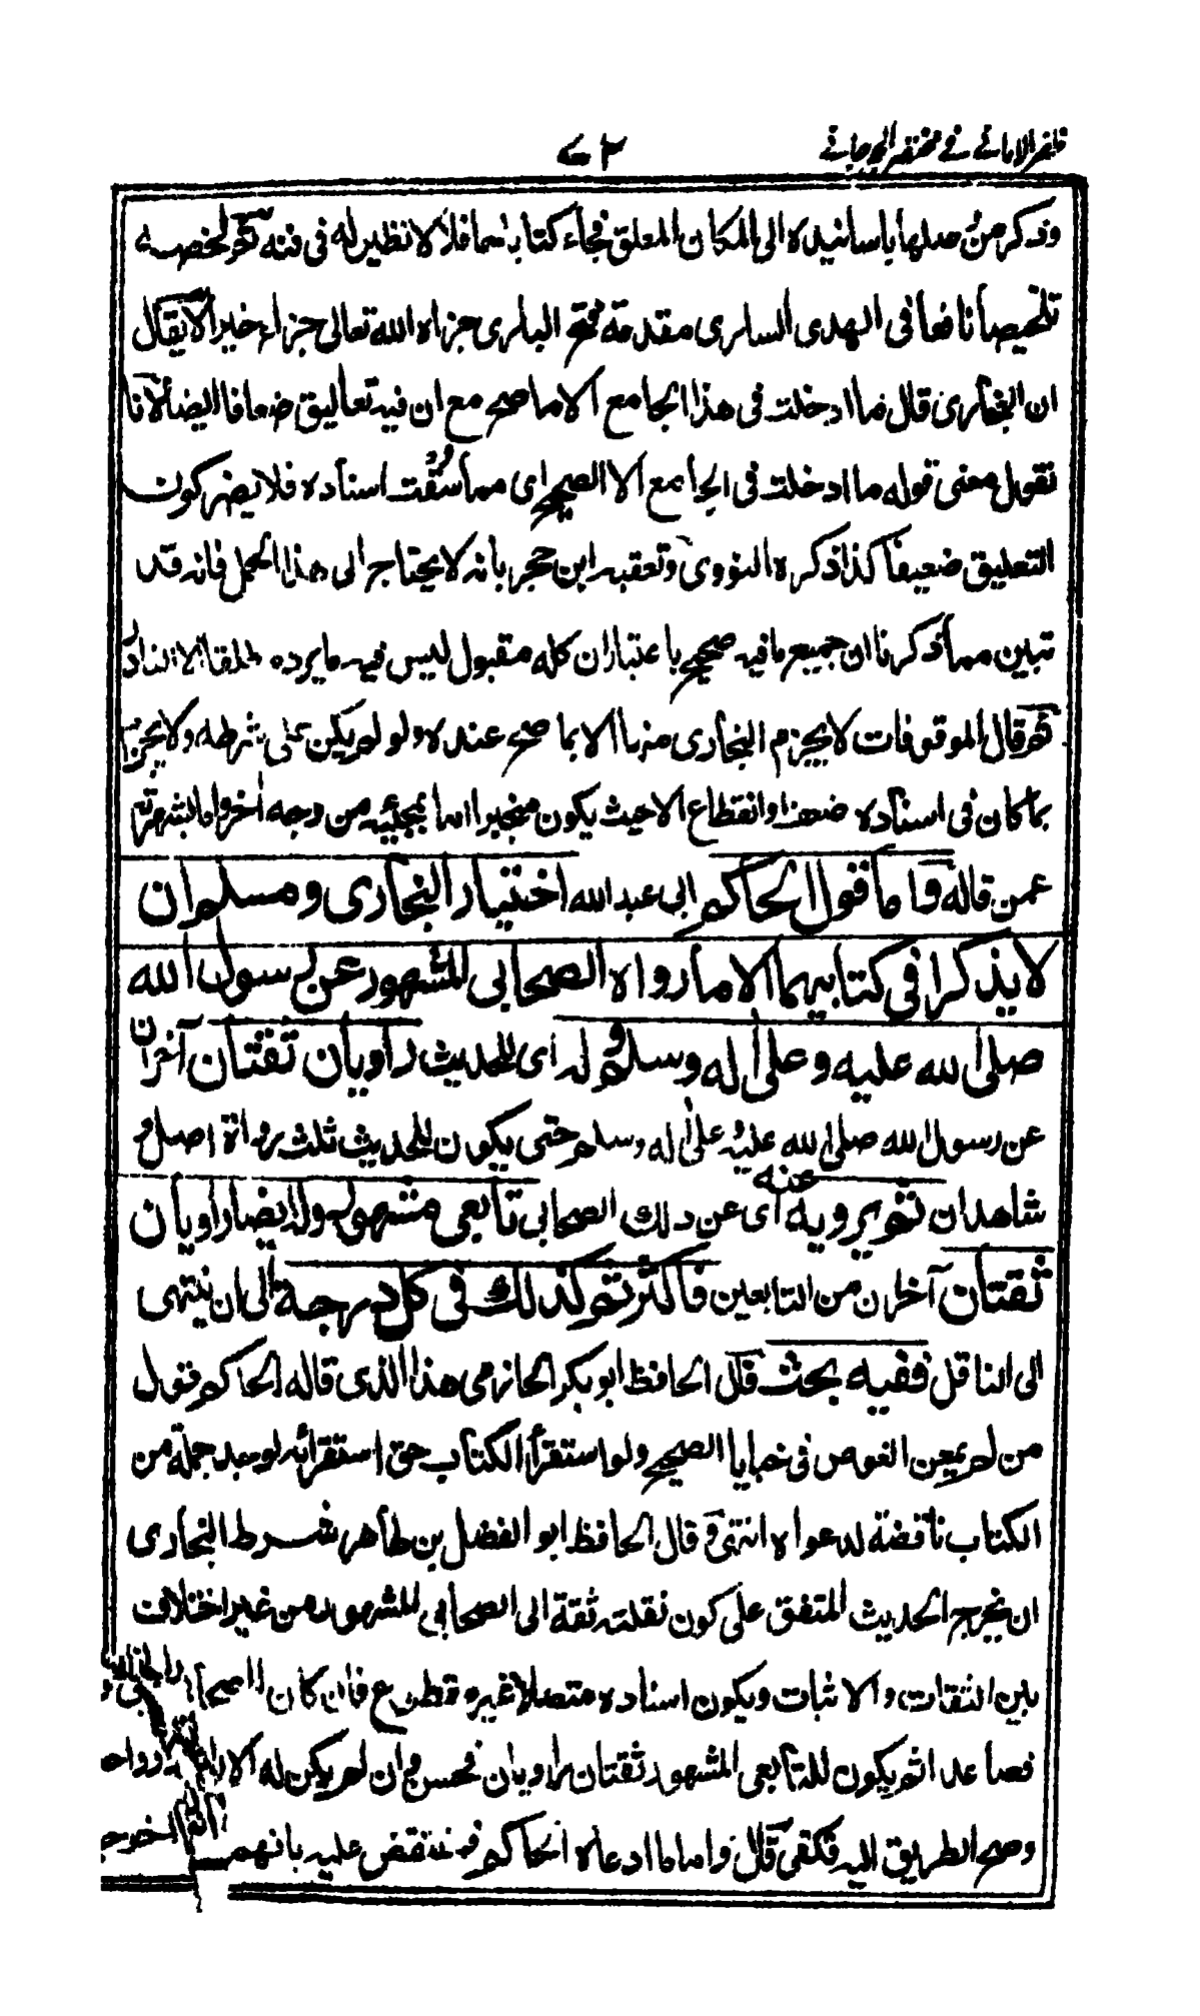 ظفر الاماني في مختصر الجرجاني
٧٣
وذكر من وصلها باسانيده الى المكان المعلق فجاء كتابا حافلا لا نظير له فى فنه ثم لخصه
تلخيصا نافعا فى الهدى السارى مقدمة فتح البارى جزاه الله تعالى جزاء خيرا لا يقال
ان البخارى قال ما ادخلت فى هذا الجامع الا ما صح مع ان فيه تعاليق ضعافا ايضا لانا
نقول معنى قوله ما ادخلت فى الجامع الا الصحيح اى مما سقت اسناده فلا يضر كون
التعليق ضعيفا كذا ذكره النووى وتعقبه ابن حجر بانه لا يحتاج الى هذا الحمل فانه قد
تبين مما ذكرنا ان جميع ما فيه صحيح باعتبار ان كله مقبول ليس فيه ما يرده مطلقا الا النادر
ثم قال الموقوفات لا يجزم البخارى منها الا بما صح عنده ولو لم يكن على شرطه ولا يجزم
بما كان فى اسناده ضعف وانقطاع الا حيث يكون منجبرا اما بمجيئه من وجه اخر واما بشهرته
عمن قاله واما قول الحاكم ابى عبد الله اختيار البخارى ومسلم ان
لا يذكرا فى كتابيهما الا ما رواه الصحابى المشهور عن رسول الله
صلى الله عليه وعلى اله وسلم وله اى للحديث راويان ثقتان آخران
عن رسول الله صلى الله عليه وعلى اله وسلم حتى يكون للحديث ثلث رواة اصل و
شاهدان ثم يرويه عنه اى عن ذلك الصحابى تابعى مشهور وله ايضا راويان
ثقتان آخران من التابعين فاكثر ثم كذلك فى كل درجة الى ان ينتهى
الى الناقل ففيه بحث قال الحافظ ابو بكر الحازمى هذا الذى قاله الحاكم قول
من لم يمعن الغوص فى خبايا الصحيح ولو استقرأ الكتاب حق استقرائه لوجد جملة من
الكتاب ناقضة لدعواه انتهى وقال الحافظ ابو الفضل بن طاهر شرط البخارى
ان يخرج الحديث المتفق على كون نقلته ثقة الى الصحابى المشهور من غير اختلاف
بين الثقات والاثبات ويكون اسناده متصلا غير مقطوع فان كان للصحابى راويان
فصاعدا ثم يكون للتابعى المشهور ثقتان راويان فحسن وان لم يكن له الا راو واحد
وصح الطريق اليه فكفى قال واما ما ادعاه الحاكم فمنتقض عليه بانهما اخرجا